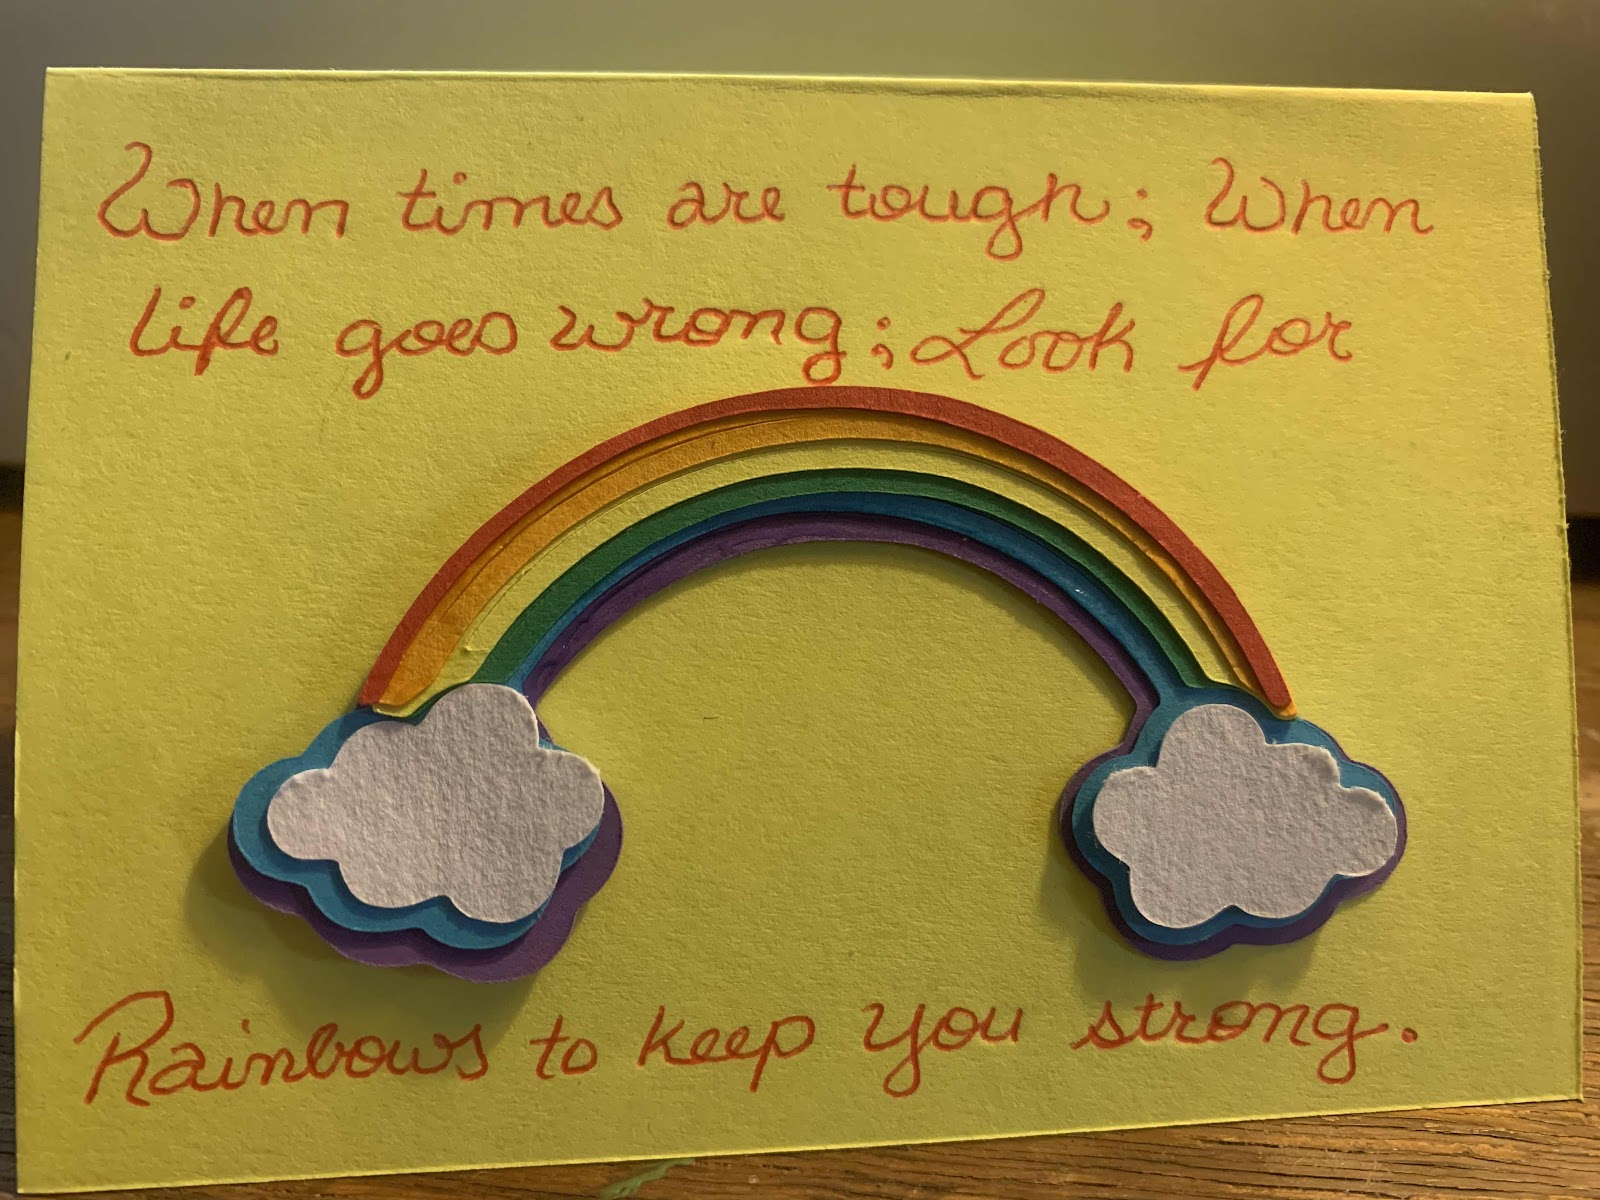 When times are tough; When
life goes wrong; Look for
Rainbows to keep you strong.